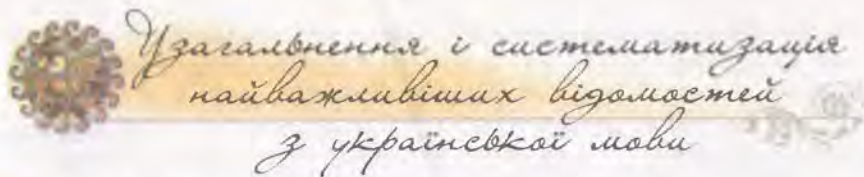 Узагальнення і систематизація
найважливіших відомостей
з української мови